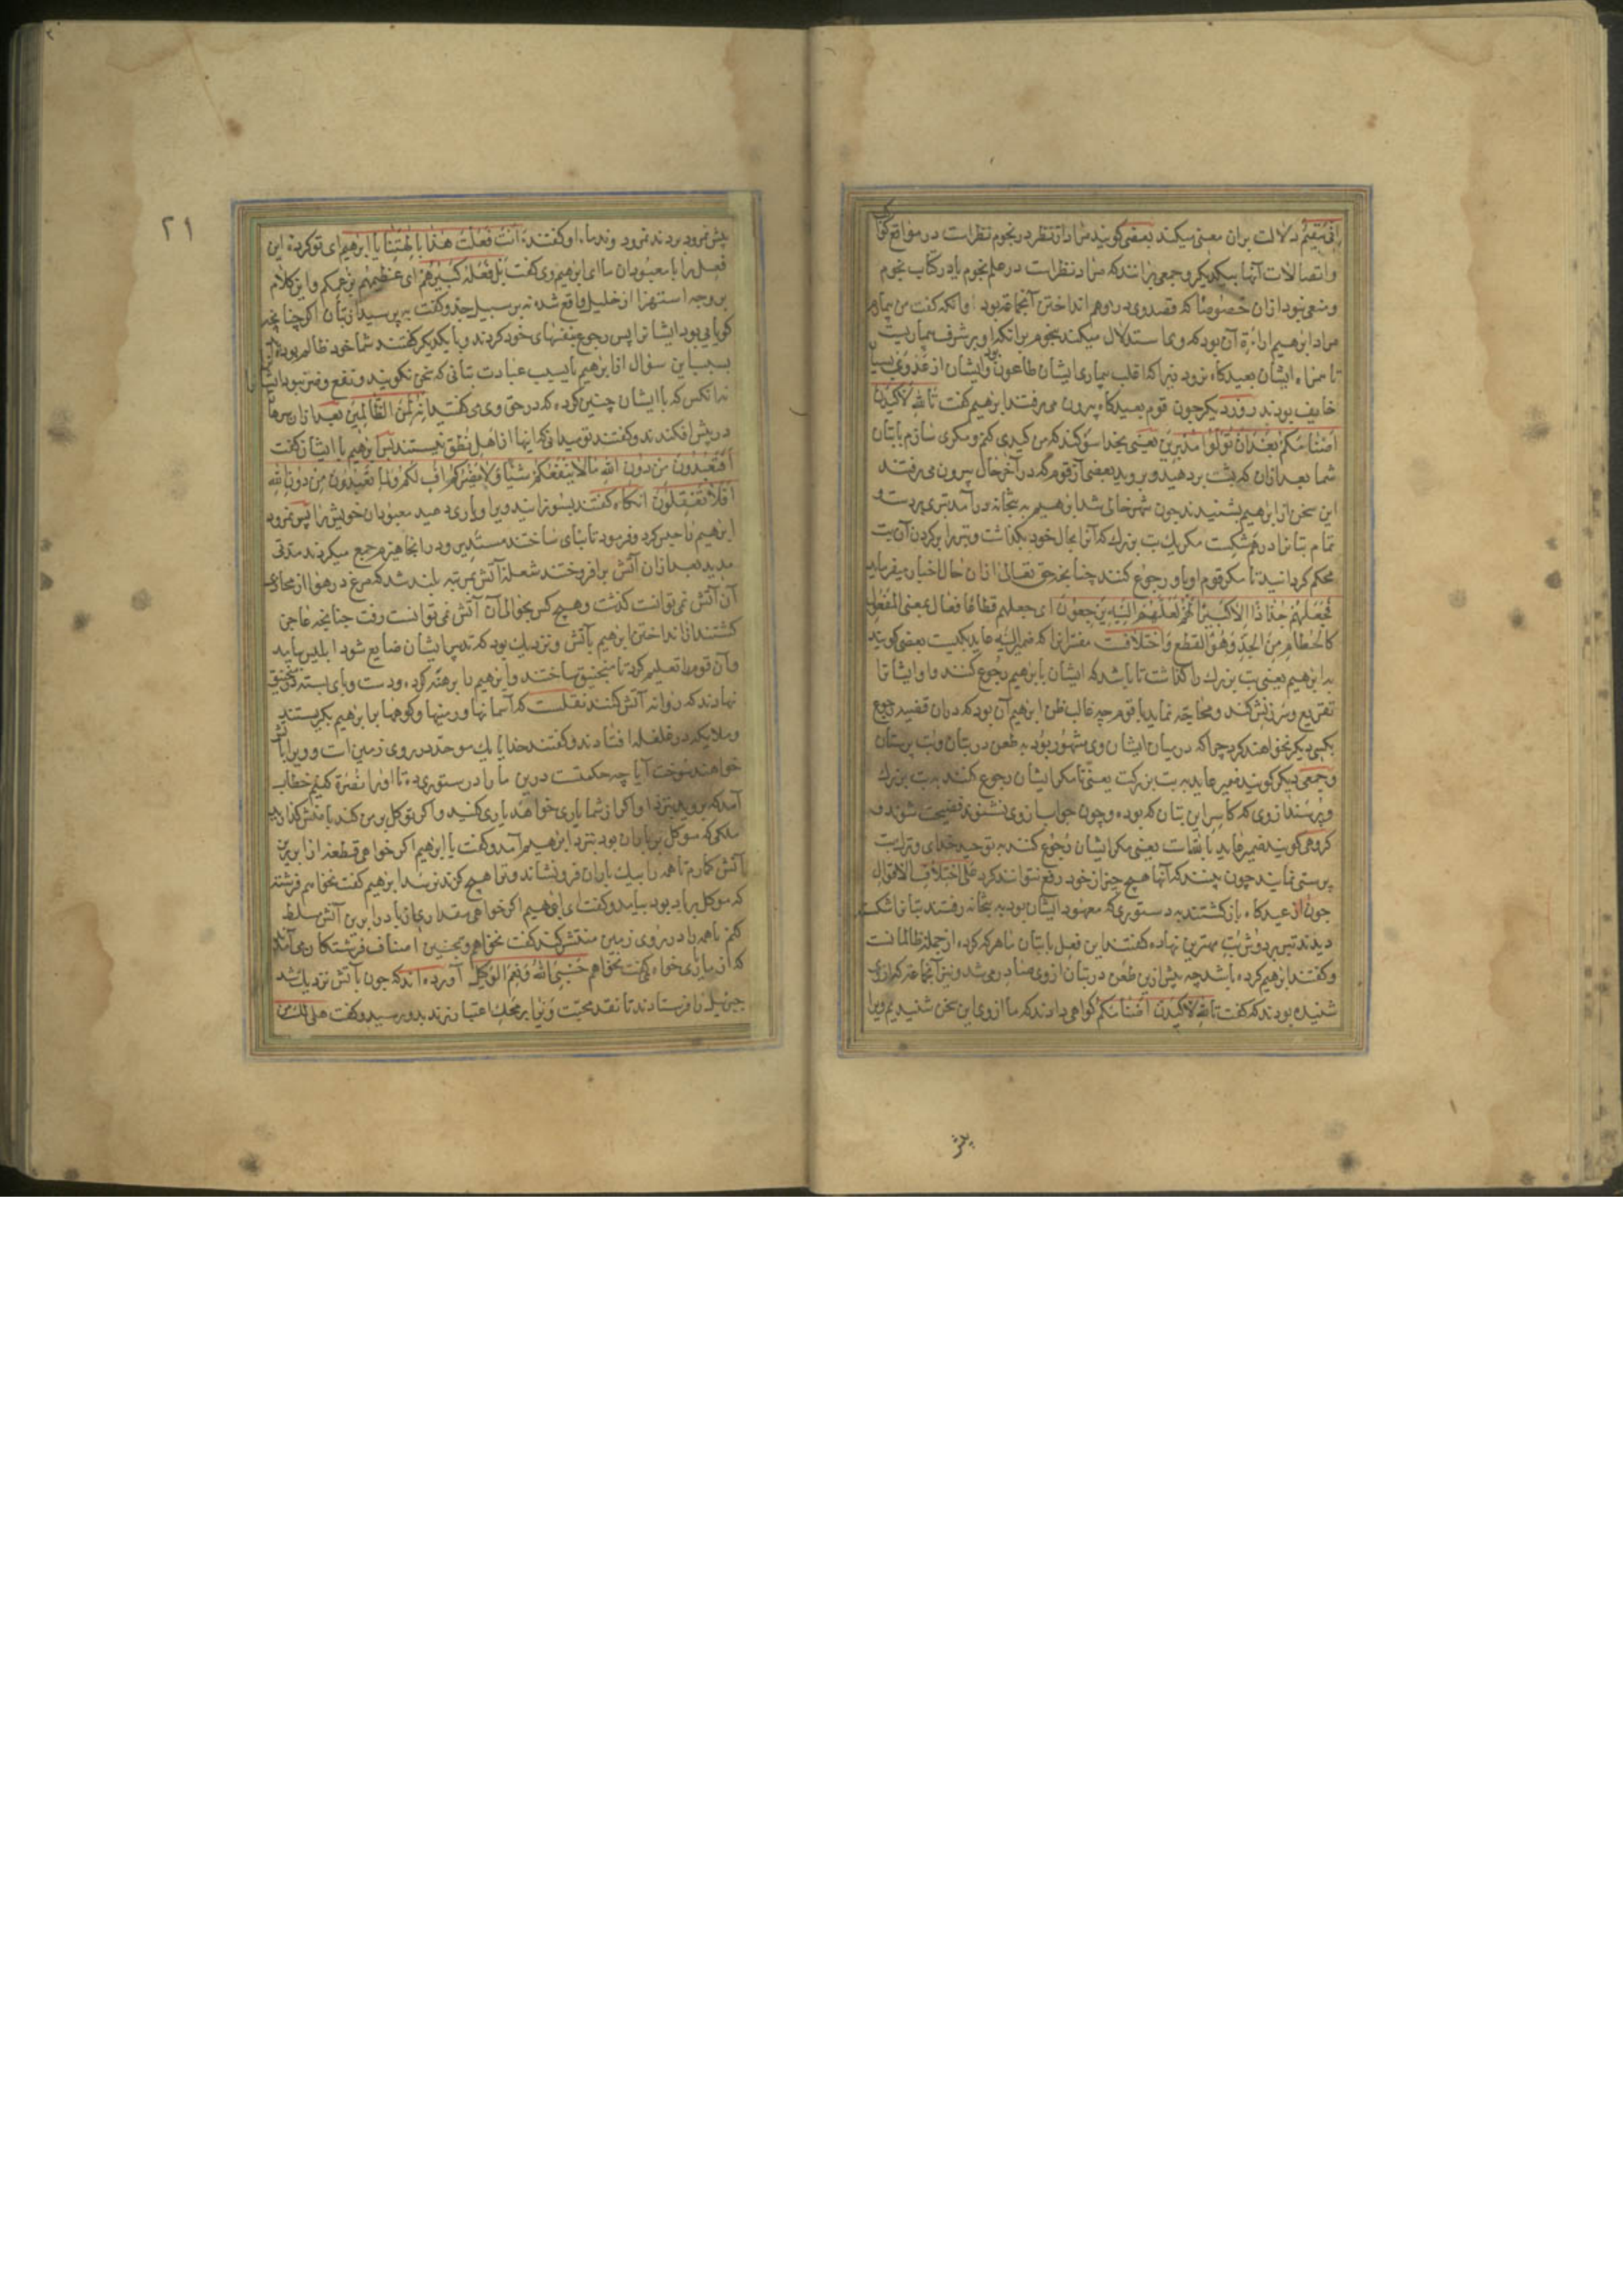 انی سقیم دلالت بران معنی میکند بعضی کویند مراد از نظر در نجوم نظرات در مواقع
واتصالات آنها بیکدیکر وجمعی برانند که مراد نظرات در علم نجوم یا در کتاب نجوم
ومنعی نبود ازان خصوصا که قصد وی در وهم انداختن آنجماعه بود وانکه کفت من بیمارم
مراد ابرهیم آن بود که وی استدلال میکند بنجوم برانکه او بر شرف بیماریست
تا همراه ایشان بعیدکاه نرود زیراکه اغلب بیماری ایشان طاعون بود وایشان از عدوی بسیار
خایف بودند روز دیکر چون قوم بعیدکاه بیرون می رفتند ابرهیم کفت تالله لاکیدن
اصنامکم بعد ان تولوا مدبرین یعنی بخدا سوکند که من کیدی کنم ومکری سازم با بتان
شما بعد ازان که پشت بر دهید وبروید بعضی از قوم که در آخر حال بیرون می رفتند
این سخن از ابرهیم بشنیدند چون شهر خالی شد ابرهیم به بتخانه در آمد تبری بدست و
تمام بتانرا در هم شکست مکر یک بت بزرک که آنرا بحال خود بکذاشت وتبر را بر کردن آن بت
محکم کردانید تا مکر قوم او باو رجوع کنند چنانچه حق تعالی ازان حال اخبار میفرماید
فجعلهم جذاذا الا کبیرا لهم لعلهم الیه یرجعون ای جعلهم قطاعا فعال بمعنی المفعول
کالحطام من الجذ وهو القطع واختلافت مفسرانرا که ضمیر الیه عاید بکیست بعضی کویند
به ابرهیم یعنی بت بزرک را کذاشت تا باشد که ایشان بابرهیم رجوع کنند واو ایشانرا
تقریع وسرزنش کند ومحاجه نماید با قوم چه غالب ظن ابرهیم آن بود که دران قضیه رجوع
بکسی دیکر نخواهند کرد چراکه در میان ایشان وی مشهور بود به طعن در بتان وبت پرستان
وجمعی دیکر کویند ضمیر عاید به بت بزرکت یعنی تا مکر ایشان رجوع کنند به بت بزرک
وپرسند از وی که کاسر این بتان که بوده وچون جواب از وی نشنوند فضیحت شوند و
کروهی کویند ضمیر عاید یعنی مکر ایشان رجوع کنند به توحید خدای وترک بت
پرستی نمایند چون بینند که آنها هیچ چیز از خود رفع نتوانند کرد علی اختلاف الاقوال
چون از عیدکاه باز کشتند به دستوری که معهود ایشان بود به بتخانه رفتند بتانرا شکسته
دیدند تبر بر دوش بت مهترین نهاده کفتند این فعل با بتان ما هر که کرده از جمله ظالمانست
وکفتند ابرهیم کرده باشد چه پیش ازین طعن در بتان از وی صادر می شد ونیز آنجماعه که از وی
شنیده بودند که کفت تالله لاکیدن اصنامکم کواهی دادند که ما از وی این سخن شنیدیم ویرا
پیش
۲۱
پیش نمرود بردند نمرود وندماء او کفتند ءانت فعلت هذا بالهتنا یا ابرهیم ای تو کرده این
فعل را با معبودان ما ای ابرهیم وی کفت بل فعله کبیرهم ای عظیمهم بزعمکم واین کلام
بر وجه استهزا از خلیل واقع شد نه بر سبیل جد وکفت به پرسید از بتان اکر چنانچه
کویایی بود ایشانرا پس رجوع بنفسهای خود کردند وبا یکدیکر کفتند شما خود ظالم بوده‌اید
بسبب این سؤال از ابرهیم یا بسبب عبادت بتانی که سخن نکویند ونفع وضر نبود ایشانرا
نه آنکس که با ایشان چنین کرده که در حق وی می کفتند انه لمن الظالمین بعد ازان سرها
در پیش افکندند وکفتند تو میدانی که اینها از اهل نطق نیستند پس ابرهیم با ایشان کفت
افتعبدون من دون الله مالا ینفعکم شیئا ولا یضرکم اف لکم ولما تعبدون من دون الله
افلا تعقلون انکاه کفتند بسوزانید ویرا ویاری دهید معبودان خویش را پس نمرود
ابرهیم را حبس کرد وفرمود تا بنای ساختند مستدیر ودر انجا هیزم جمع میکردند مدتی
مدید بعد ازان آتش برافروختند شعله آتش بمرتبه بلند شد که مرغ در هوا از محاذی
آن آتش نمی توانست کذشت وهیچ کس بحوالی آن آتش نمی توانست رفت چنانچه عاجز
کشتند از انداختن ابرهیم بآتش ونزدیک بود که تدبیر ایشان ضایع شود ابلیس بیامد
وآن قومرا تعلیم کرد تا منجنیق ساختند وابرهیم را برهنه کرده ودست وپای بسته در منجنیق
نهادند که روانه آتش کنند نقلست که آسمانها وزمینها وکوهها بر ابرهیم بکریستند
وملایکه در غلغله افتادند وکفتند خدایا یک موحد در روی زمین است وویرا
خواهند سوخت آیا چه حکمتست درین ما را دستوری ده تا اورا نصرة کنیم خطاب
آمد که بروید بنزد او اکر از شما یاری خواهد یاری کنید واکر توکل بر من کند با منش کذارید
ملکی که موکل بر باران بود بنزد ابرهیم آمد وکفت یا ابرهیم اکر خواهی قطعه از ابر برین
آتش کمارم تا همه را بیک باران فرونشاند وترا هیچ کزند نرسد ابرهیم کفت نخواهم فرشته
که موکل بر باد بود بیامد وکفت ای ابرهیم اکر خواهی مقداری از باد را برین آتش مسلط
کنم تا همه را در روی زمین منتشر کند کفت نخواهم وهمچنین اصناف فرشتکان می آمدند
که از ما یاری خواه می کفت نخواهم حسبی الله ونعم الوکیل آورده‌اند که چون بآتش نزدیک شد
جبرئیل را فرستادند تا نقد محبت ویرا بر محک اعتبار زند بدو رسید وکفت هل لک من